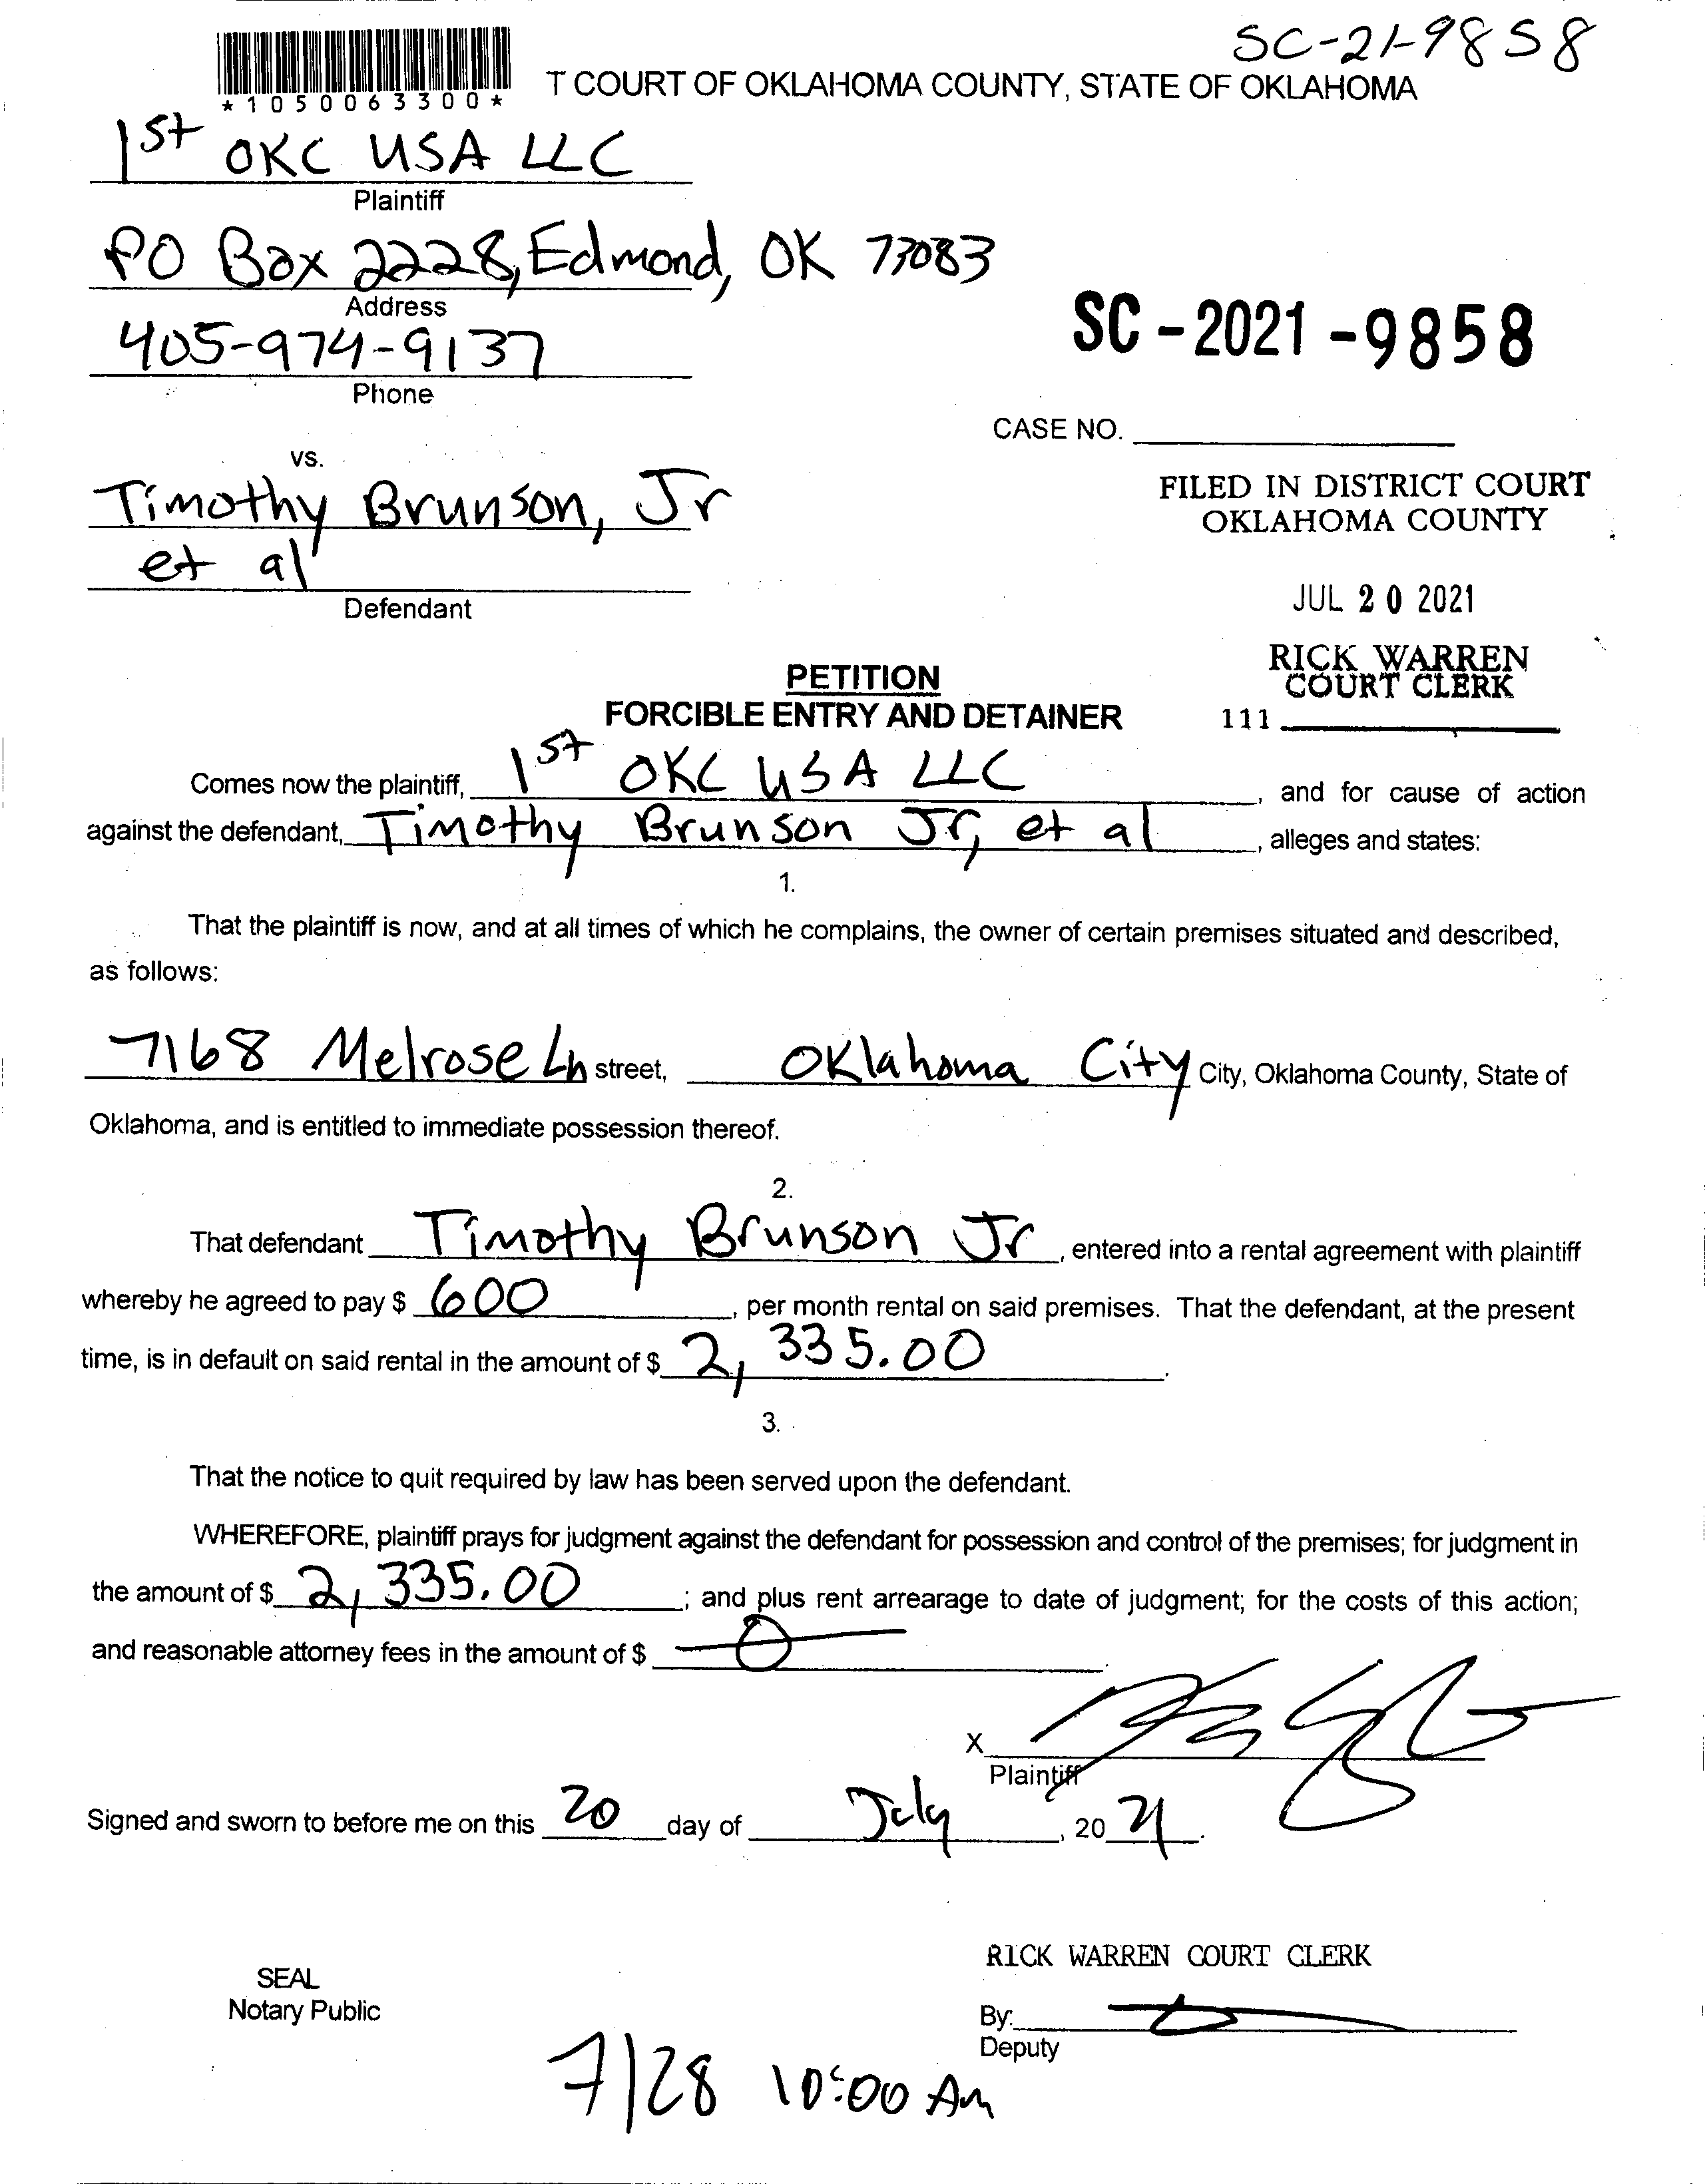 SC-21-9858
*1050063300*
T COURT OF OKLAHOMA COUNTY, STATE OF OKLAHOMA
1st OKC USA LLC
Plaintiff
PO Box 2228, Edmond, OK 73083
Address
405-974-9137
Phone
SC-2021-9858
CASE NO.
vs.
Timothy Brunson, Jr
et al
Defendant
FILED IN DISTRICT COURT
OKLAHOMA COUNTY
JUL 20 2021
RICK WARREN
COURT CLERK
111
PETITION
FORCIBLE ENTRY AND DETAINER
Comes now the plaintiff, 1st OKC USA LLC, and for cause of action
against the defendant, Timothy Brunson Jr, et al, alleges and states:
1.
That the plaintiff is now, and at all times of which he complains, the owner of certain premises situated and described,
as follows:
7168 Melrose Ln street, Oklahoma City City, Oklahoma County, State of
Oklahoma, and is entitled to immediate possession thereof.
2.
That defendant Timothy Brunson Jr, entered into a rental agreement with plaintiff
whereby he agreed to pay $ 600, per month rental on said premises. That the defendant, at the present
time, is in default on said rental in the amount of $ 2,335.00.
3.
That the notice to quit required by law has been served upon the defendant.
WHEREFORE, plaintiff prays for judgment against the defendant for possession and control of the premises; for judgment in
the amount of $ 2,335.00; and plus rent arrearage to date of judgment; for the costs of this action;
and reasonable attorney fees in the amount of $ 0.
X
Plaintiff
Signed and sworn to before me on this 20 day of July, 20 21.
RICK WARREN COURT CLERK
SEAL
Notary Public
By:
Deputy
7/28 10:00 Am